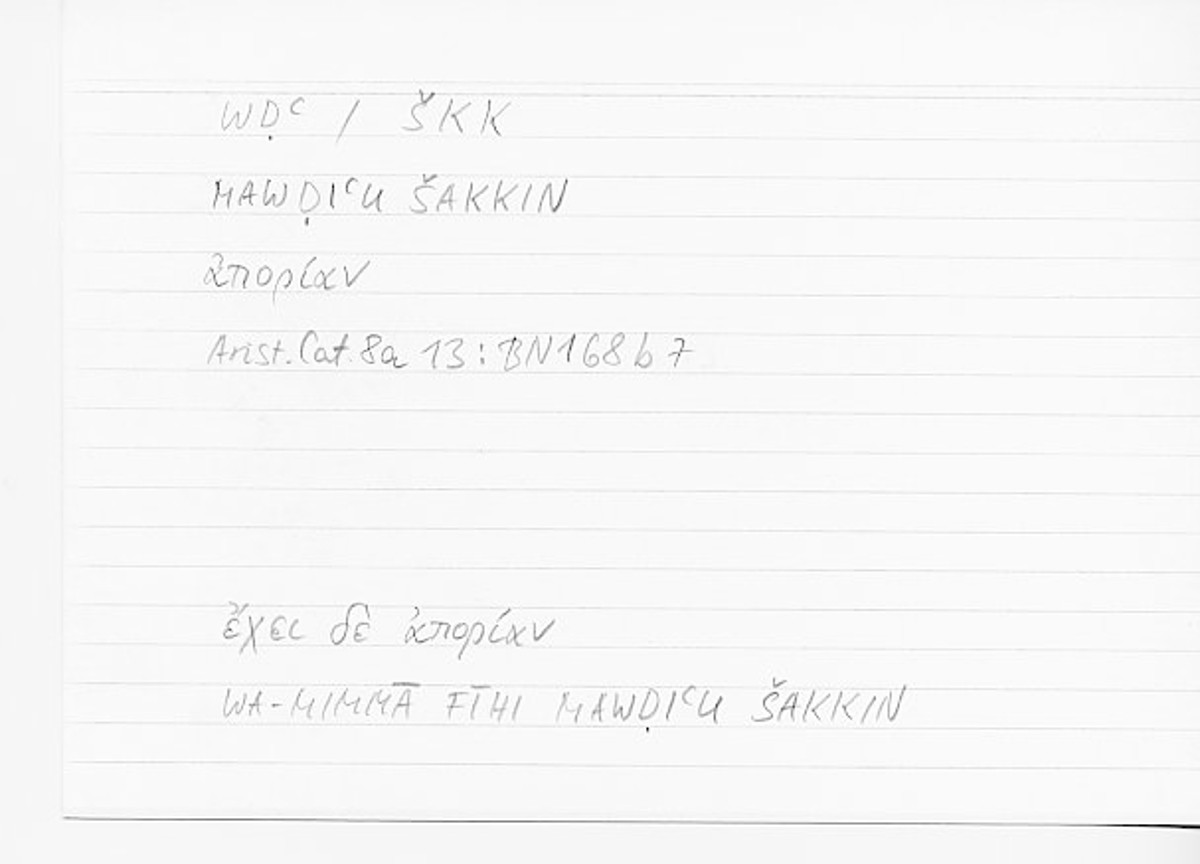 WḌʿ / ŠKK
MAWḌIʿU ŠAKKIN
ἀπορίαν
Arist. Cat. 8a 13 : BN168b7
ἔχει δὲ ἀπορίαν
WA-MIMMĀ FĪHI MAWḌIʿU ŠAKKIN